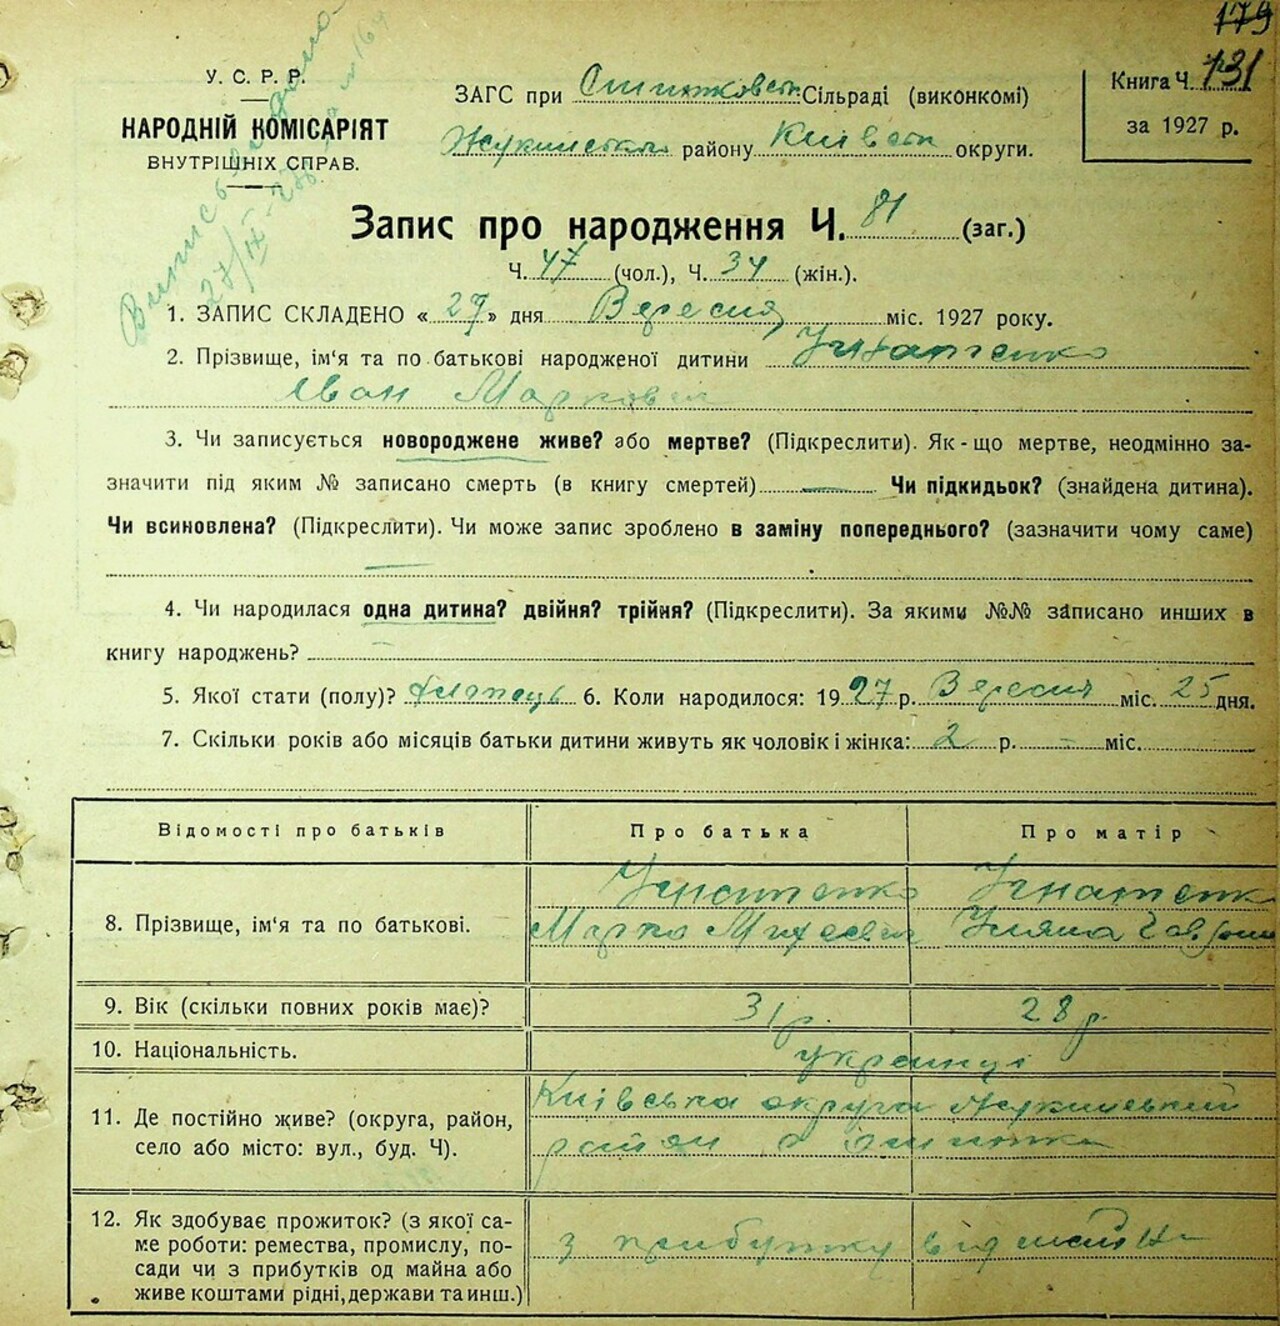 179
131
У. С. Р. Р.
НАРОДНІЙ КОМІСАРІЯТ
ВНУТРІШНІХ СПРАВ.
ЗАГС при Сільраді (виконкомі)
Жукинського району Київськ округи.
Книга Ч. 131
за 1927 р.
Запис про народження Ч. 81 (заг.)
Ч. 47 (чол.), Ч. 34 (жін.).
1. ЗАПИС СКЛАДЕНО « 27 » дня Вересня міс. 1927 року.
2. Прізвище, ім‘я та по батькові народженої дитини Игнатенко
Іван Маркович
3. Чи записується новороджене живе? або мертве? (Підкреслити). Як-що мертве, неодмінно за-
значити під яким № записано смерть (в книгу смертей) Чи підкидьок? (знайдена дитина).
Чи всиновлена? (Підкреслити). Чи може запис зроблено в заміну попереднього? (зазначити чому саме)
4. Чи народилася одна дитина? двійня? трійня? (Підкреслити). За якими №№ записано инших в
книгу народжень?
5. Якої стати (полу)? 6. Коли народилося: 1927 р. Вересня міс. 25 дня.
7. Скільки років або місяців батьки дитини живуть як чоловік і жінка: 2 р. - міс.
Відомості про батьків Про батька Про матір
8. Прізвище, ім‘я та по батькові. Игнатенко Марко Игнатенко Уляна
9. Вік (скільки повних років має)? 31 р. 28 р.
10. Національність. українці
11. Де постійно живе? (округа, район, Київська округа Жукинський
село або місто: вул., буд. Ч). район с
12. Як здобуває прожиток? (з якої са-
ме роботи: ремества, промислу, по- з прибутку від
сади чи з прибутків од майна або
живе коштами рідні, держави та инш.)